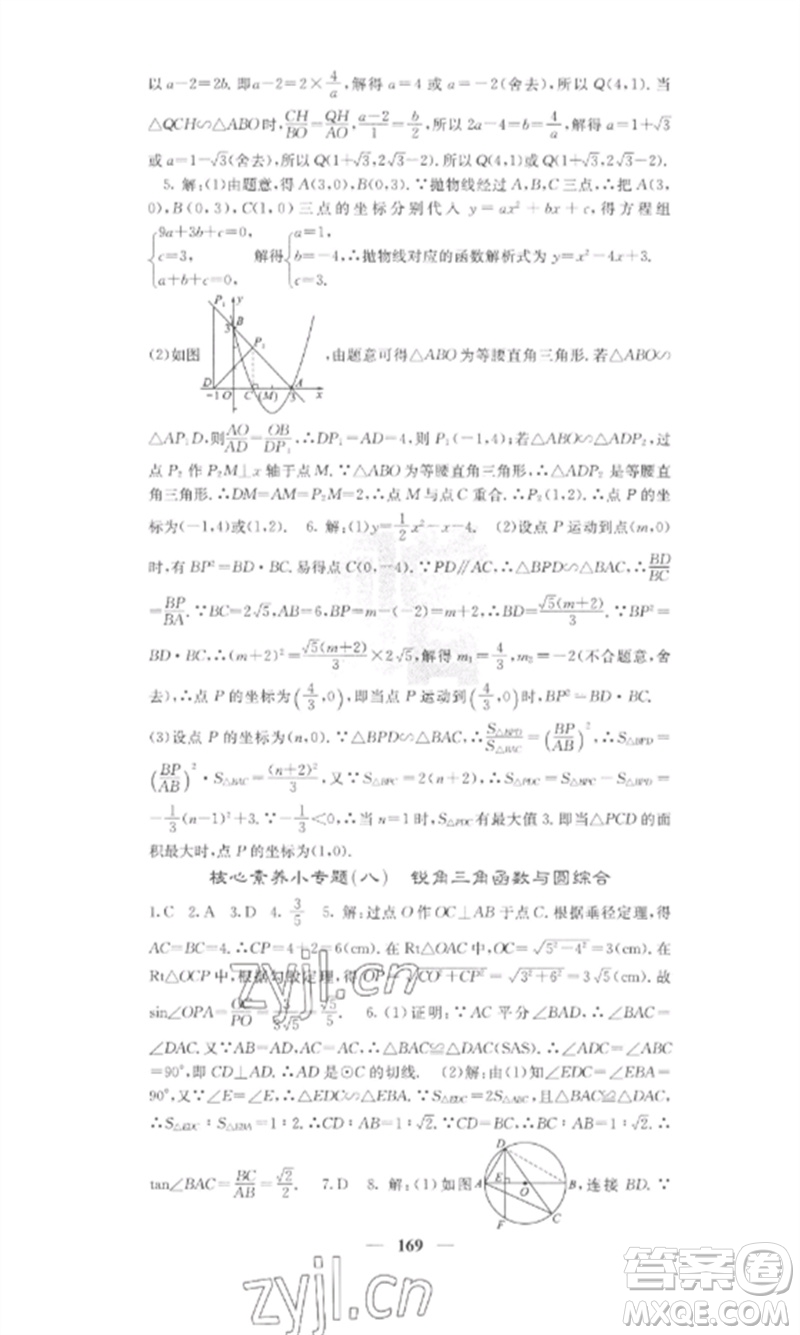 以a-2=2b. 即a-2=2×4/a,解得a=4 或a=-2(舍去),所以 Q(4,1). 当
△QCH∽△ABO时,CH/BO=QH/AO,(a-2)/1=b/2,所以 2a-4=b=4/a,解得 a=1+√3
或a=1-√3(舍去),所以Q(1+√3,2√3-2). 所以Q(4,1)或Q(1+√3,2√3-2).
5. 解:(1)由题意,得A(3,0),B(0,3). ∵抛物线经过A,B,C三点,∴把A(3,
0),B(0,3),C(1,0)三点的坐标分别代入 y=ax²+bx+c,得方程组
{9a+3b+c=0, c=3, a+b+c=0, 解得{a=1, b=-4, c=3. ∴抛物线对应的函数解析式为y=x²-4x+3.
P₁ y B 3 P₂ D -1 O C (M) 3 A x
(2)如图 ,由题意可得△ABO为等腰直角三角形. 若△ABO∽
△AP₁D,则AO/AD=OB/DP₁,∴DP₁=AD=4,则 P₁(-1,4);若△ABO∽△ADP₂,过
点 P₂ 作 P₂M⊥x 轴于点 M. ∵△ABO为等腰直角三角形,∴△ADP₂ 是等腰直
角三角形. ∴DM=AM=P₂M=2,∴点 M 与点C 重合. ∴P₂(1,2). ∴点 P 的坐
标为(-1,4)或(1,2). 6. 解:(1)y=1/2x²-x-4. (2)设点 P 运动到点(m,0)
时,有 BP²=BD·BC. 易得点 C(0,-4). ∵PD∥AC,∴△BPD∽△BAC,∴BD/BC
=BP/BA. ∵BC=2√5,AB=6,BP=m-(-2)=m+2,∴BD=√5(m+2)/3. ∵BP²=
BD·BC,∴(m+2)²=√5(m+2)/3×2√5,解得 m₁=4/3,m₂=-2(不合题意,舍
去),∴点 P 的坐标为(4/3,0),即当点 P 运动到(4/3,0)时,BP²=BD·BC.
(3)设点 P 的坐标为(n,0). ∵△BPD∽△BAC,∴S△BPD/S△BAC=(BP/AB)²,∴S△BPD=
(BP/AB)²·S△BAC=(n+2)²/3,又∵S△BPC=2(n+2),∴S△PDC=S△BPC-S△BPD=
-1/3(n-1)²+3. ∵-1/3<0,∴当 n=1 时,S△PDC有最大值 3. 即当△PCD 的面
积最大时,点 P 的坐标为(1,0).
核心素养小专题(八) 锐角三角函数与圆综合
1.C 2.A 3.D 4. 3/5 5. 解:过点 O 作 OC⊥AB 于点 C. 根据垂径定理,得
AC=BC=4. ∴CP=4+2=6(cm). 在 Rt△OAC 中,OC=√(5²-4²)=3(cm). 在
Rt△OCP 中,根据勾股定理,得 OP=√(CO²+CP²)=√(3²+6²)=3√5(cm). 故
sin∠OPA=OC/PO=3/(3√5)=√5/5. 6. (1)证明:∵AC 平分∠BAD,∴∠BAC=
∠DAC. 又∵AB=AD,AC=AC,∴△BAC≌△DAC(SAS). ∴∠ADC=∠ABC
=90°,即 CD⊥AD. ∴AD 是⊙C 的切线. (2)解:由(1)知∠EDC=∠ABC=
90°,又∵∠E=∠E,∴△EDC∽△EBA. ∵S△EDC=2S△ABC,且△BAC≌△DAC,
∴S△EDC∶S△EBA=1∶2. ∴CD∶AB=1∶√2. ∵CD=CB,∴BC∶AB=1∶√2. ∴
tan∠BAC=BC/AB=√2/2. 7.D 8. 解:(1)如图 ,连接 BD. ∵
D A E O B F C
169
zyjl.cn
zyjl.cn
答案卷
MXQE.COM